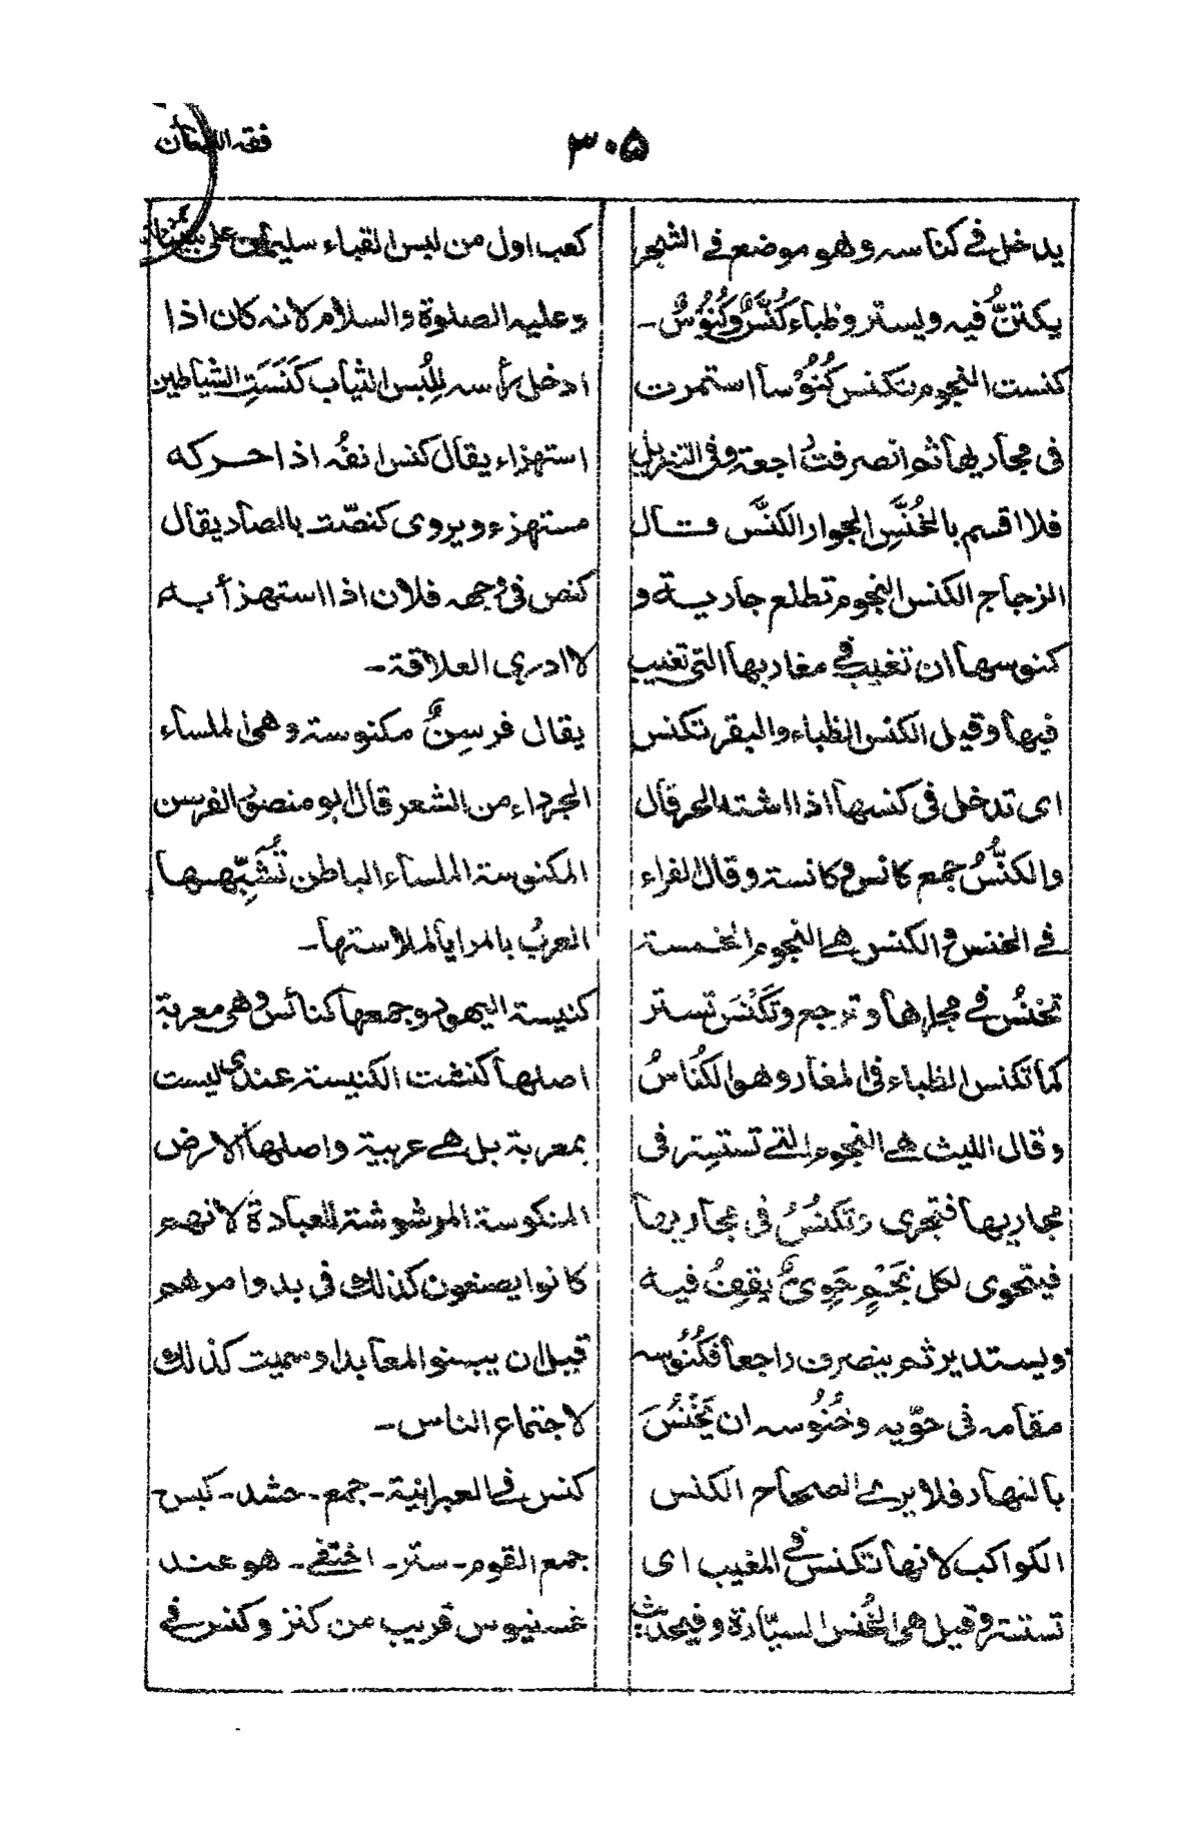 ۳۰۵
فقه اللسان
يدخل فى كناسه وهو موضع فى الشجر
يكتنُّ فيه ويستتر وظباء كُنَّسٌ وكُنُوْسٌ ـ
كنست النجوم تكنس كُنُوْساً استمرت
فى مجاريها ثم انصرفت راجعة وفى التنزيل
فلا اقسم بالخُنَّسِ الجوار الكنَّس قال
الزجاج الكنس النجوم تطلع جارية و
كنوسها ان تغيب فى مغاربها التى تغيب
فيها وقيل الكنس الظباء والبقر تكنس
اى تدخل فى كنسها اذا اشتد الحر قال
والكنَّسُ جمع كانس وكانسة وقال الفراء
فى الخنس والكنس هى النجوم الخمسة
تخنُسُ فى مجراها وترجع وتَكْنُسُ تستتر
كما تكنس الظباء فى المغار وهو الكُنَاسُ
وقال الليث هى النجوم التى تستتر فى
مجاريها فتجرى وتَكنُسُ فى مجاريها
فيتحوى لكل نَجْمٍ حَوِىٌّ يقِفُ فيه
ويستدير ثم ينصرف راجعاً فكُنُوْسه
مقامه فى حوّيه وخُنُوسه ان يَخْنُسَ
بالنهار فلا يرى الصحاح الكنس
الكواكب لانها تكنس فى المغيب اى
تستتر وقيل هى الخُنس السيّارة وفى حديث
كعب اول من لبس القباء سليمان على نبينا
وعليه الصلوة والسلام لانه كان اذا
ادخل رأسه للُبس الثياب كَنَسَتِ الشياطين
استهزاء يقال كنس انفُه اذا حركه
مستهزء ويروى كنصّت بالصاد يقال
كنص فى وجهه فلان اذا استهزأ به
لا ادرى العلاقة ـ
يقال فرسِنٌ مكنوسة وهى الملساء
الجرداء من الشعر قال ابو منصور الفرسن
المكنوسة الملساء الباطن تُشَبِّهها
العربُ بالمرايا لملاستها ـ
كنيسة اليهود وجمعها كنائس وهى معربة
اصلها كنفت الكنيسة عندى ليست
بمعربة بل هى عربية واصلها الارض
المنكوسة المرشوشة للعبادة لانهم
كانوا يصنعون كذلك فى بدو امرهم
قبل ان يبنوا المعابد او سميت كذلك
لاجتماع الناس ـ
كنس فى العبرانية ـ جمع ـ حشد ـ كبس
جمع القوم ـ ستر ـ اختفى ـ هو عند
غسنيوس قريب من كنز وكنس فى